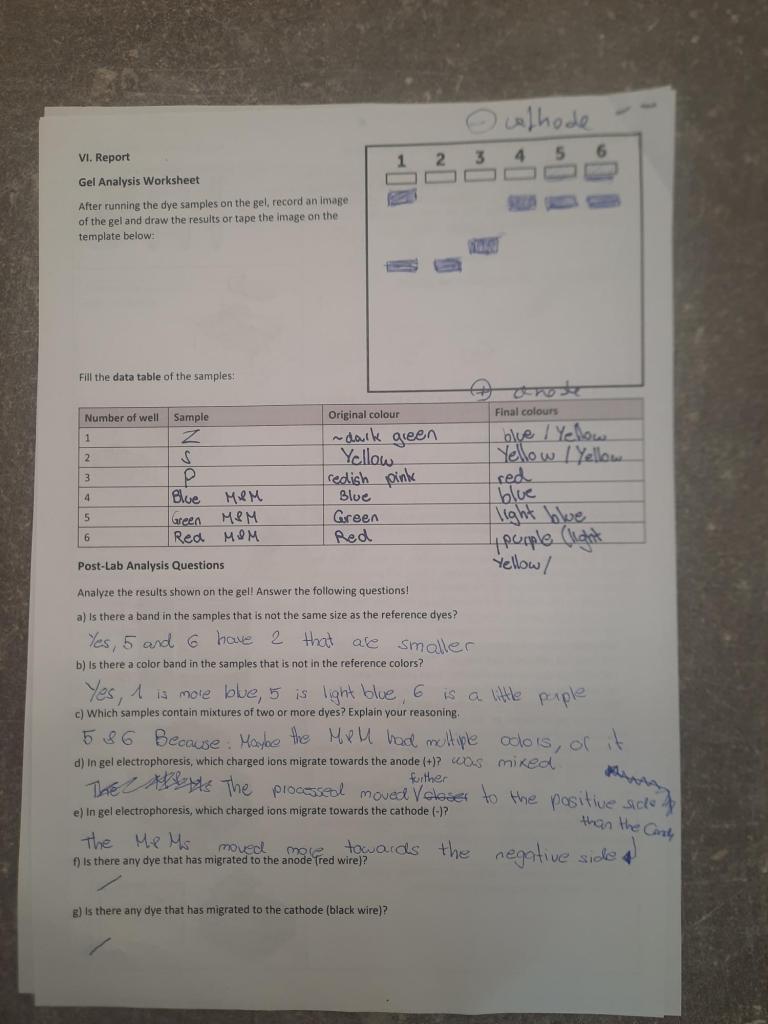 ⊖ cathode
VI. Report
Gel Analysis Worksheet
After running the dye samples on the gel, record an image
of the gel and draw the results or tape the image on the
template below:
1 2 3 4 5 6
Fill the data table of the samples:
⊕ anode
Number of well Sample Original colour Final colours
1 Z ~dark green blue / Yellow
2 S Yellow Yellow / Yellow
3 P redish pink red
4 Blue M&M Blue blue
5 Green M&M Green light blue
6 Red M&M Red purple (light
Yellow/
Post-Lab Analysis Questions
Analyze the results shown on the gel! Answer the following questions!
a) Is there a band in the samples that is not the same size as the reference dyes?
Yes, 5 and 6 have 2 that are smaller
b) Is there a color band in the samples that is not in the reference colors?
Yes, 1 is more blue, 5 is light blue, 6 is a little purple
c) Which samples contain mixtures of two or more dyes? Explain your reasoning.
5 & 6 Because: Maybe the M&M had multiple colors, or it
was mixed
d) In gel electrophoresis, which charged ions migrate towards the anode (+)?
The processed moved further to the positive side
than the Candy
e) In gel electrophoresis, which charged ions migrate towards the cathode (-)?
The M&Ms moved more towards the negative side
f) Is there any dye that has migrated to the anode (red wire)?
/
g) Is there any dye that has migrated to the cathode (black wire)?
/